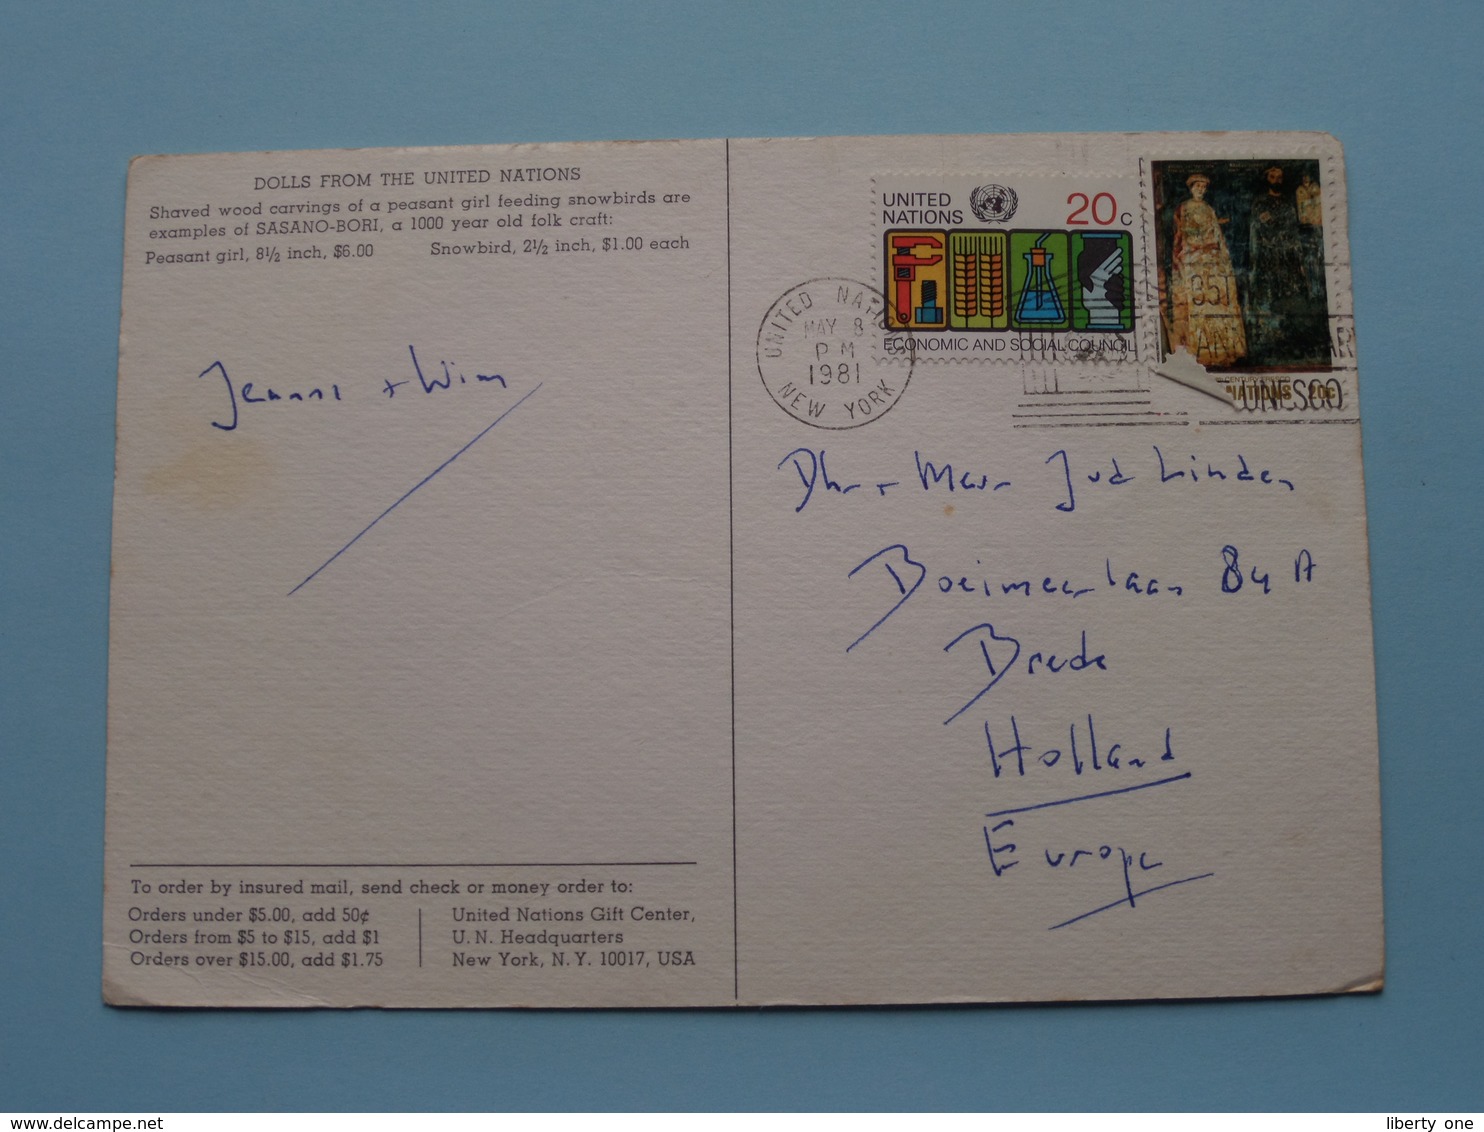 DOLLS FROM THE UNITED NATIONS
Shaved wood carvings of a peasant girl feeding snowbirds are
examples of SASANO-BORI, a 1000 year old folk craft:
Peasant girl, 8½ inch, $6.00 Snowbird, 2½ inch, $1.00 each
Jeanne + Wim
To order by insured mail, send check or money order to:
Orders under $5.00, add 50¢
Orders from $5 to $15, add $1
Orders over $15.00, add $1.75
United Nations Gift Center,
U. N. Headquarters
New York, N. Y. 10017, USA
UNITED
NATIONS
20c
ECONOMIC AND SOCIAL COUNCIL
NATIONS 20c
UNITED NATIONS
MAY 8
PM
1981
NEW YORK
UNESCO
Dhr + Mevr Jvd Linden
Boeimeerlaan 84 A
Breda
Holland
Europa
liberty one